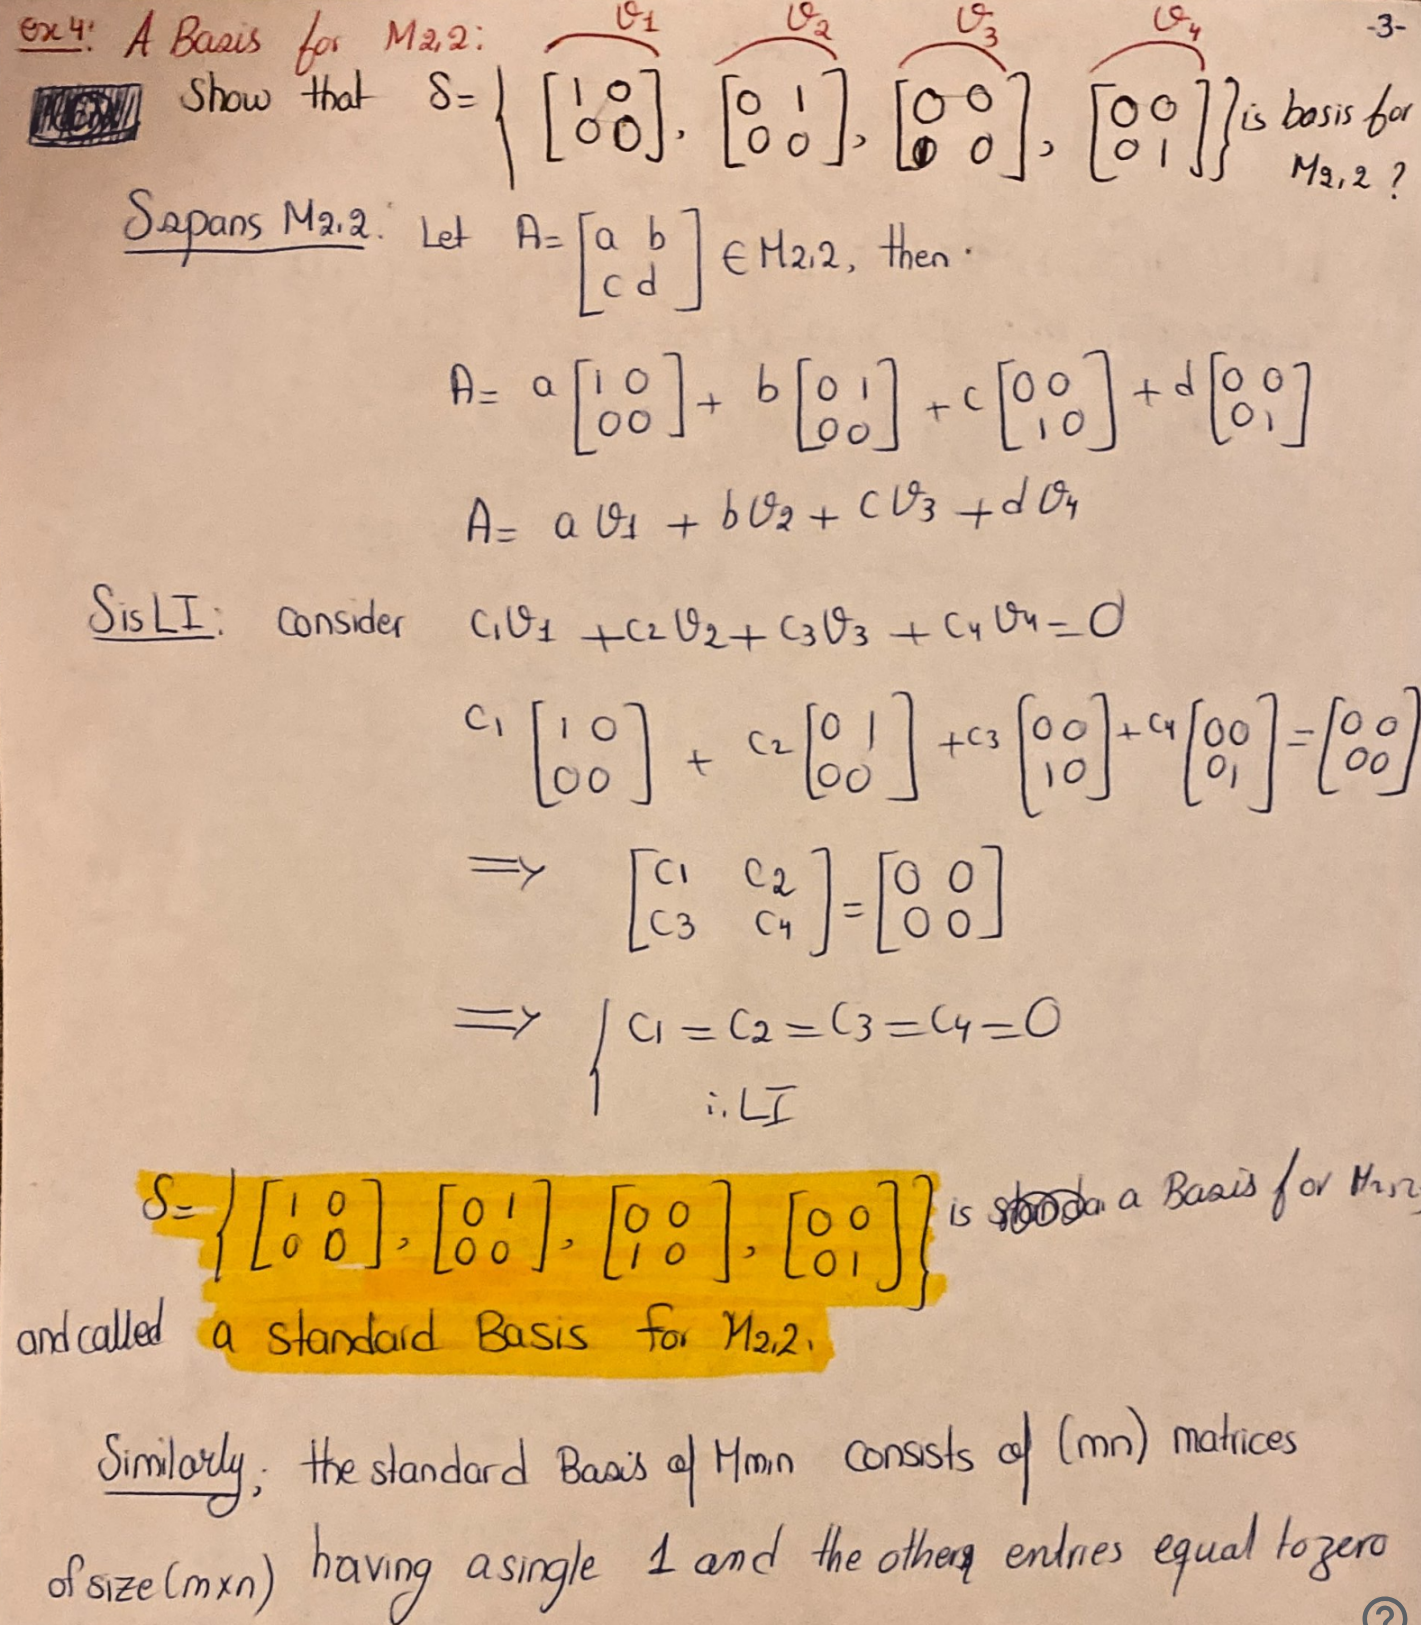 ex4: A Basis for M2,2: v1 v2 v3 v4 -3-
Show that S= { [1 0; 0 0], [0 1; 0 0], [0 0; 1 0], [0 0; 0 1] } is basis for
M2,2?
Spans M2,2: Let A= [a b; c d] ∈ M2,2, then.
A= a [1 0; 0 0] + b [0 1; 0 0] + c [0 0; 1 0] + d [0 0; 0 1]
A= a v1 + b v2 + c v3 + d v4
S is LI: consider c1 v1 + c2 v2 + c3 v3 + c4 v4 = 0
c1 [1 0; 0 0] + c2 [0 1; 0 0] + c3 [0 0; 1 0] + c4 [0 0; 0 1] = [0 0; 0 0]
⇒ [c1 c2; c3 c4] = [0 0; 0 0]
⇒ { c1 = c2 = c3 = c4 = 0
∴ LI
S= { [1 0; 0 0], [0 1; 0 0], [0 0; 1 0], [0 0; 0 1] } is a Basis for M2,2
and called a standard Basis for M2,2.
Similarly; the standard Basis of Mm,n consists of (mn) matrices
of size (mxn) having a single 1 and the other entries equal to zero
?